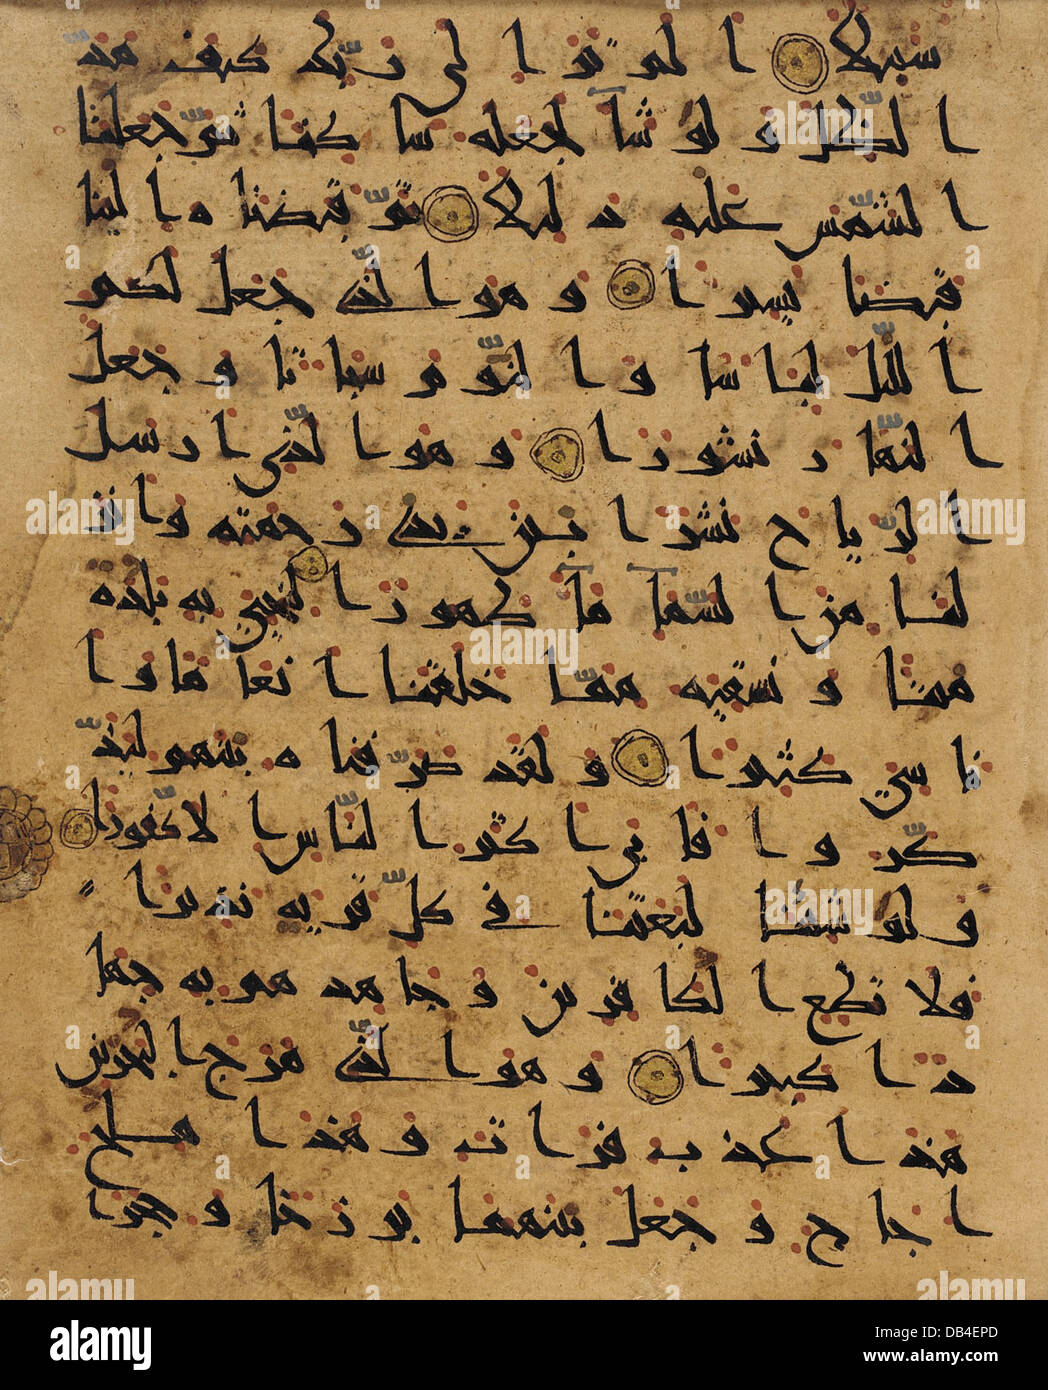 سبيلا الم تر الى ربك كيف مد
الظل ولو شآ لجعله ساكنا ثمّ جعلنا
الشمس عليه دليلا ثمّ قبضناه الينا
قبضا يسيرا وهو الذي جعل لكم
الليل لباسا والنوم سباتا وجعل
النهار نشورا وهو الذي ارسل
الرياح نشرا بين يدي رحمته وانز
لنا من السمآ مآ طهورا لنحيي به بلدة
ميتا ونسقيه ممّا خلقنا انعاما وا
ناسي كثيرا ولقد صرّفناه بينهم ليذّ
كّروا فابى اكثر الناس الا كفورا
ولو شئنا لبعثنا في كلّ قرية نذيرا
فلا تطع الكافرين وجاهدهم به جها
دا كبيرا وهو الذي مرج البحرين
هذا عذب فرات وهذا ملح
اجاج وجعل بينهما برزخا وحجرا
alamy
Image ID: DB4EPD
www.alamy.com